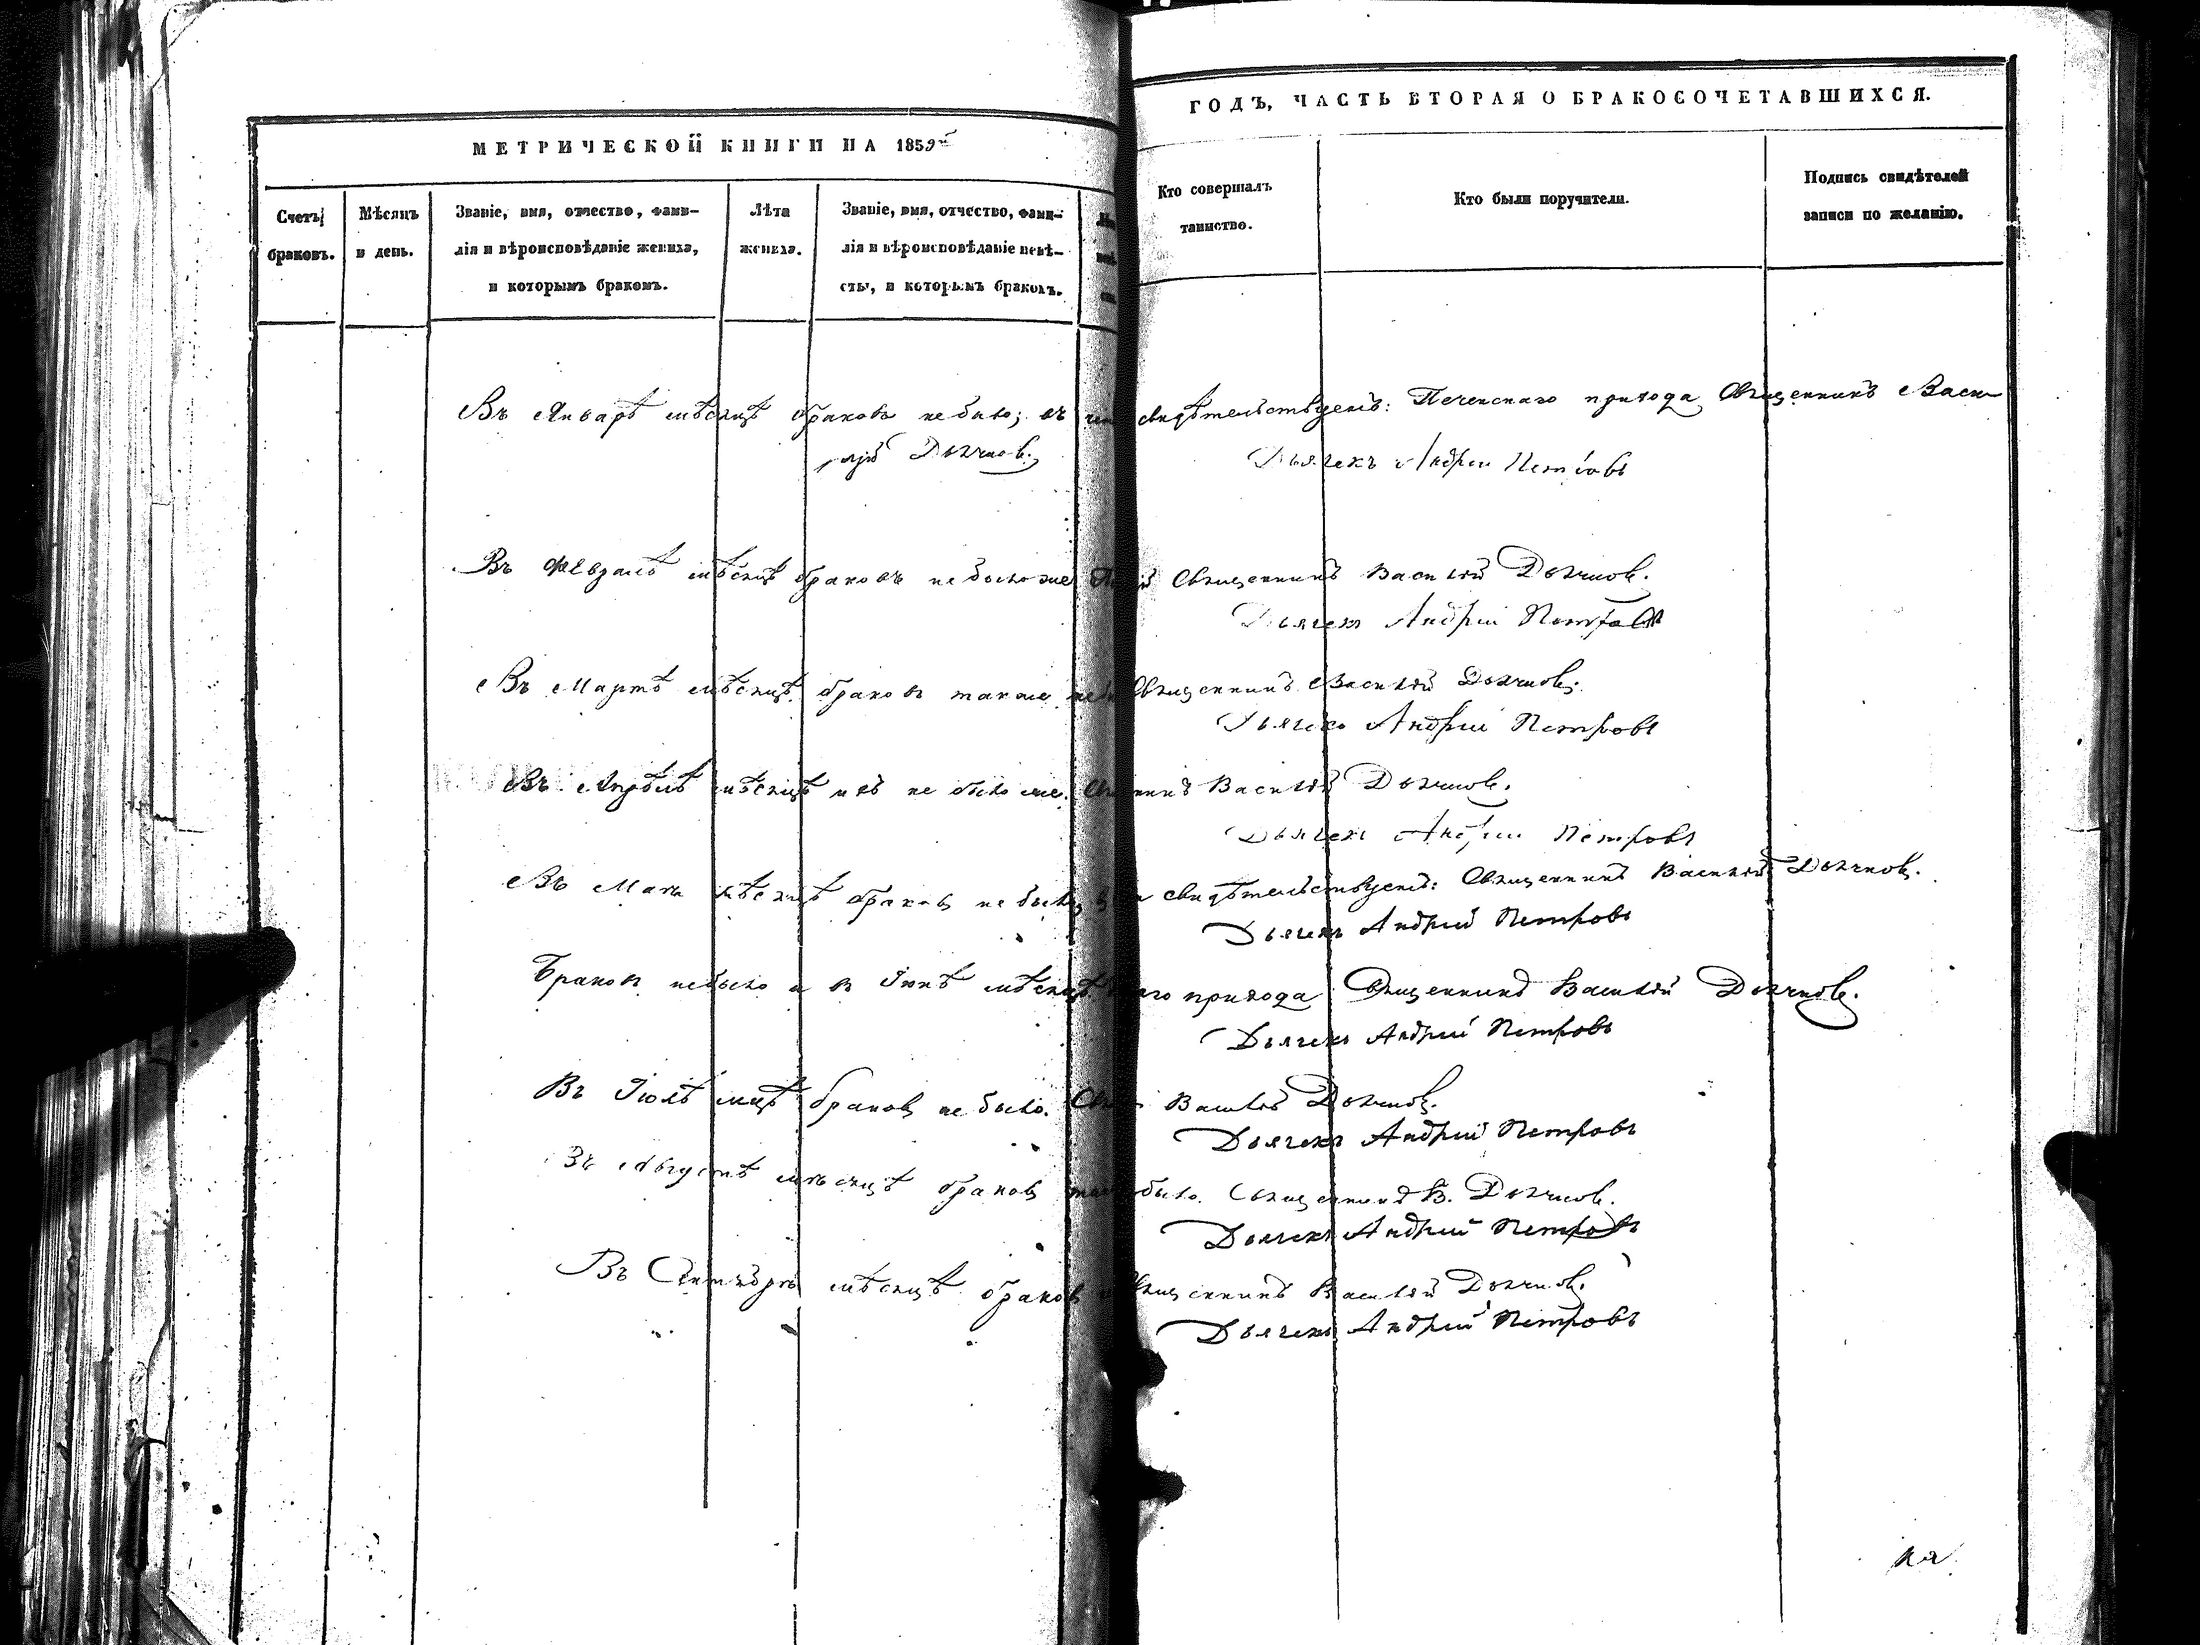 МЕТРИЧЕСКОЙ КНИГИ НА 1859й
ГОДЪ, ЧАСТЬ ВТОРАЯ О БРАКОСОЧЕТАВШИХСЯ.
Счетъ браковъ.
Мѣсяцъ и день.
Званіе, имя, отчество, фами-
лія и вѣроисповѣданіе жениха,
и которымъ бракомъ.
Лѣта жениха.
Званіе, имя, отчество, фами-
лія и вѣроисповѣданіе невѣ-
сты, и которымъ бракомъ.
Кто совершалъ
таинство.
Кто были поручители.
Подпись свидѣтелей
записи по желанію.
Въ Январѣ мѣсяцѣ браковъ не было; въ чемъ свидѣтельствуемъ: прихода Священникъ Васи-
лій
Дьячекъ Андрей Петровъ
Въ Февралѣ мѣсяцѣ браковъ не было же Священникъ Василій
Дьячекъ Андрей Петровъ
Въ Мартѣ мѣсяцѣ браковъ также Священникъ Василій
Дьячекъ Андрей Петровъ
Въ Апрѣлѣ мѣсяцѣ ихъ не было же. Василій
Дьячекъ Андрей Петровъ
Въ Маѣ мѣсяцѣ браковъ не было свидѣтельствуемъ: Священникъ Василій
Дьячекъ Андрей Петровъ
Браковъ не было и въ Іюнѣ мѣсяцѣ прихода Священникъ Василій
Дьячекъ Андрей Петровъ
Въ Іюлѣ мцѣ браковъ не было. Василій
Дьячекъ Андрей Петровъ
Въ Августѣ мѣсяцѣ браковъ было. Священникъ В.
Дьячекъ Андрей Петровъ
Въ Сентябрѣ мѣсяцѣ браковъ Священникъ Василій
Дьячекъ Андрей Петровъ